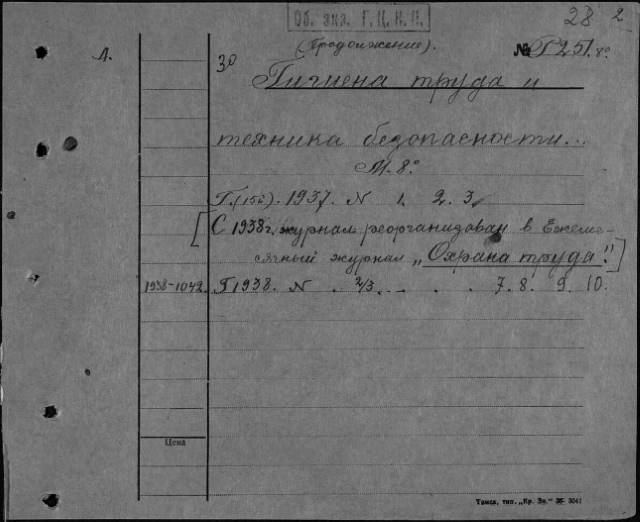 Об. экз. Г.Ц.К.П.
28 2
(Продолжение).
№ Г251. 8°
Л.
30
Гигиена труда и
техника безопасности...
М. 8°
Г.(15й). 1937. N 1. 2. 3.
[С 1938 г. журнал реорганизован в Ежеме-
сячный журнал „Охрана труда".]
1938-1042. Г 1938. N . 2/3. — . . 7. 8. 9. 10.
Цена
Томск, тип. „Кр. Зн."
3041